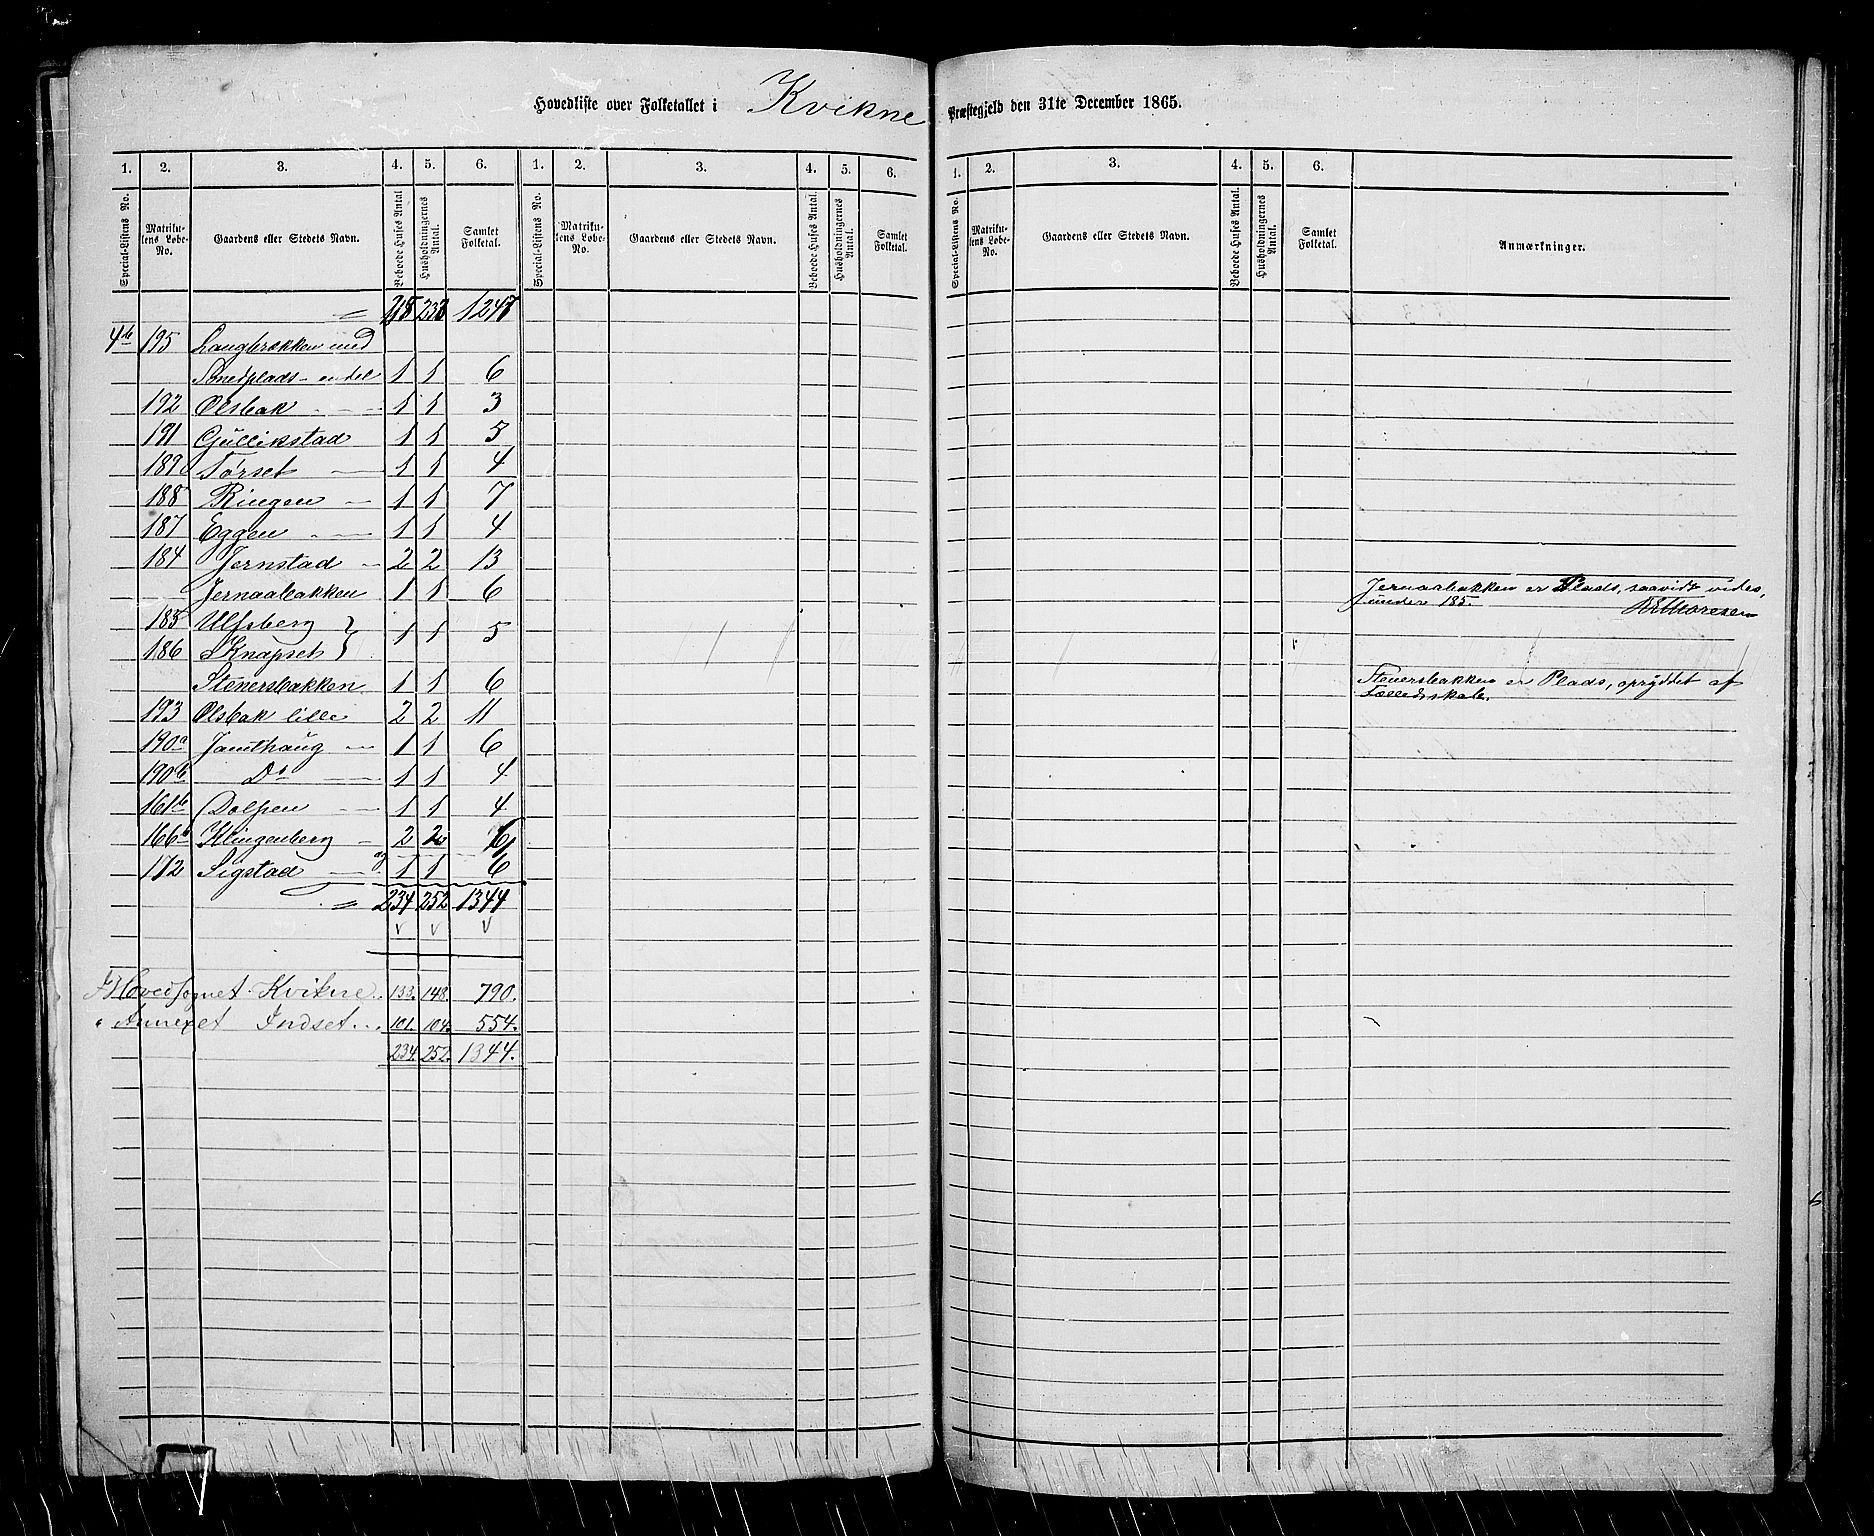 Hovedliste over Folketallet i Kvikne Præstegjeld den 31te December 1865.
1. 2. 3. 4. 5. 6. 1. 2. 3. 4. 5. 6. 1. 2. 3. 4. 5. 6.
Special-Listens No. Matrikulens Løbe-No. Gaardens eller Stedets Navn. Beboede Huses Antal. Husholdningernes Antal. Samlet Folketal. Special-Listens No. Matrikulens Løbe-No. Gaardens eller Stedets Navn. Beboede Huses Antal. Husholdningernes Antal. Samlet Folketal. Special-Listens No. Matrikulens Løbe-No. Gaardens eller Stedets Navn. Beboede Huses Antal. Husholdningernes Antal. Samlet Folketal. Anmærkninger.
1247
4b 195 Langbrækken med
Smedplads - endel 1 1 6
192 Olsbak 1 1 3
191 Gullikstad 1 1 5
189 Torset 1 1 4
188 Ringen 1 1 7
187 Eggen 1 1 4
184 Jernstad 2 2 13
Jernaabakken 1 1 6 Jernaabakken er Plads, saavidt vides,
under 185.
185 Ulfsberg }
1 1 5
186 Knapset }
Stenersbakken 1 1 6 Stenersbakken er Plads, opryddet af
Fælledsskate.
193 Olsbak lille 2 2 11
190a Jamthaug 1 1 6
190b Do 1 1 4
161b Dolpen 1 1 4
166b Klingenberg 2 2 6
172 Sigstad og 1 1 6
= 234 252 1344
Hovedsognet Kvikne 133. 148. 790.
" Annexet Indset 101. 104. 554.
234. 252. 1344.